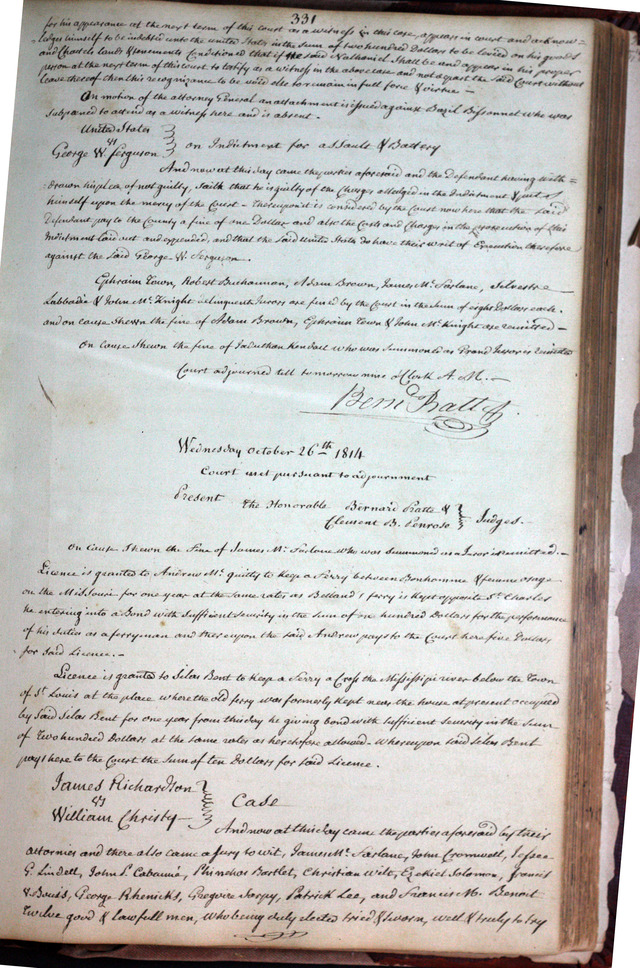 331
for his appearance at the next term of this court as a witness in this case, appears in court and acknow=
ledges himself to be indebted unto the united States in the sum of two hundred Dollars to be levied on his goods
and Chattels lands & tenements Conditioned that if the said Nathaniel Shall be and appear in his proper
person at the next term of this Court to testify as a witness in the above case and not depart the said Court without
leave thereof then this recognizance to be void else to remain in full force & virtue —
On motion of the attorney General an attachment is issued against Bazil Bissonnet who was
subpoened to attend as a witness here and is absent.
United States
vs
George W. Ferguson
on Indictment for assault & Battery
And now at this day came the parties aforesaid and the Defendant having with=
drawn his plea of not guilty, saith that he is guilty of the Charges alledged in the Indictment & puts
himself upon the mercy of the Court – Thereupon it is considered by the Court now here that the said
Defendant pay to the County a fine of one Dollar and also the Costs and Charges in the prosecution of this
Indictment laid out and expended, and that the said United States do have their writ of Execution therefore
against the said George W. Ferguson.
Ephraim Town, Robert Buchannan, Adam Brown, James Mc. Farlane, Silvestre
Labbadie & John Mc. Knight delinquent Jurors are fined by the Court in the Sum of eight Dollars each.
and on cause Shewn the fine of Adam Brown, Ephraim Town & John Mc Knight are remitted —
On Cause Shewn the fine of Kendall who was summoned as Grand Juror is remitted
Court adjourned till tomorrow nine oClock A.M. —
Bernd Pratte
Wednesday October 26th 1814
Court met pursuant to adjournment
Present
The Honorable Bernard Pratte &
Clement B. Penrose
Judges. —
On cause Shewn the Fine of James Mc Farlane who was summoned as a Juror is remitted. —
Licence is granted to Andrew Mc. quitty to keep a Ferry between Bonhomme & femme osage
on the Missouri for one year at the same rates as Belland's ferry is kept opposite St Charles
he entering into a Bond with sufficient security in the sum of one hundred Dollars for the performance
of his duties as a ferryman and thereupon the said Andrew pays to the Court here five Dollars
for said Licence. —
Licence is granted to Silas Bent to keep a Ferry a Cross the Missisippi river below the Town
of St Louis at the place where the old ferry was formerly kept near the house at present occupied
by said Silas Bent for one year from this day he giving bond with sufficient security in the Sum
of Two hundred Dollars at the same rates as heretofore allowed – Whereupon said Silas Bent
pays here to the Court the Sum of ten Dollars for said Licence.
James Richardson
vs
William Christy
Case
And now at this day came the parties aforesaid by their
attornies and there also came a Jury to wit, James Mc. Farlane, John Cromwell, Jesse
G. Lindell, John P. Cabanné, Phinehas Bartlet, Christian Wilt, Ezekiel Solomon, francis
George Gregoire Sarpy, Patrick Lee, and Francis M. Benoit
Twelve good & lawfull men, who being duly elected tried & sworn, well & truly to try